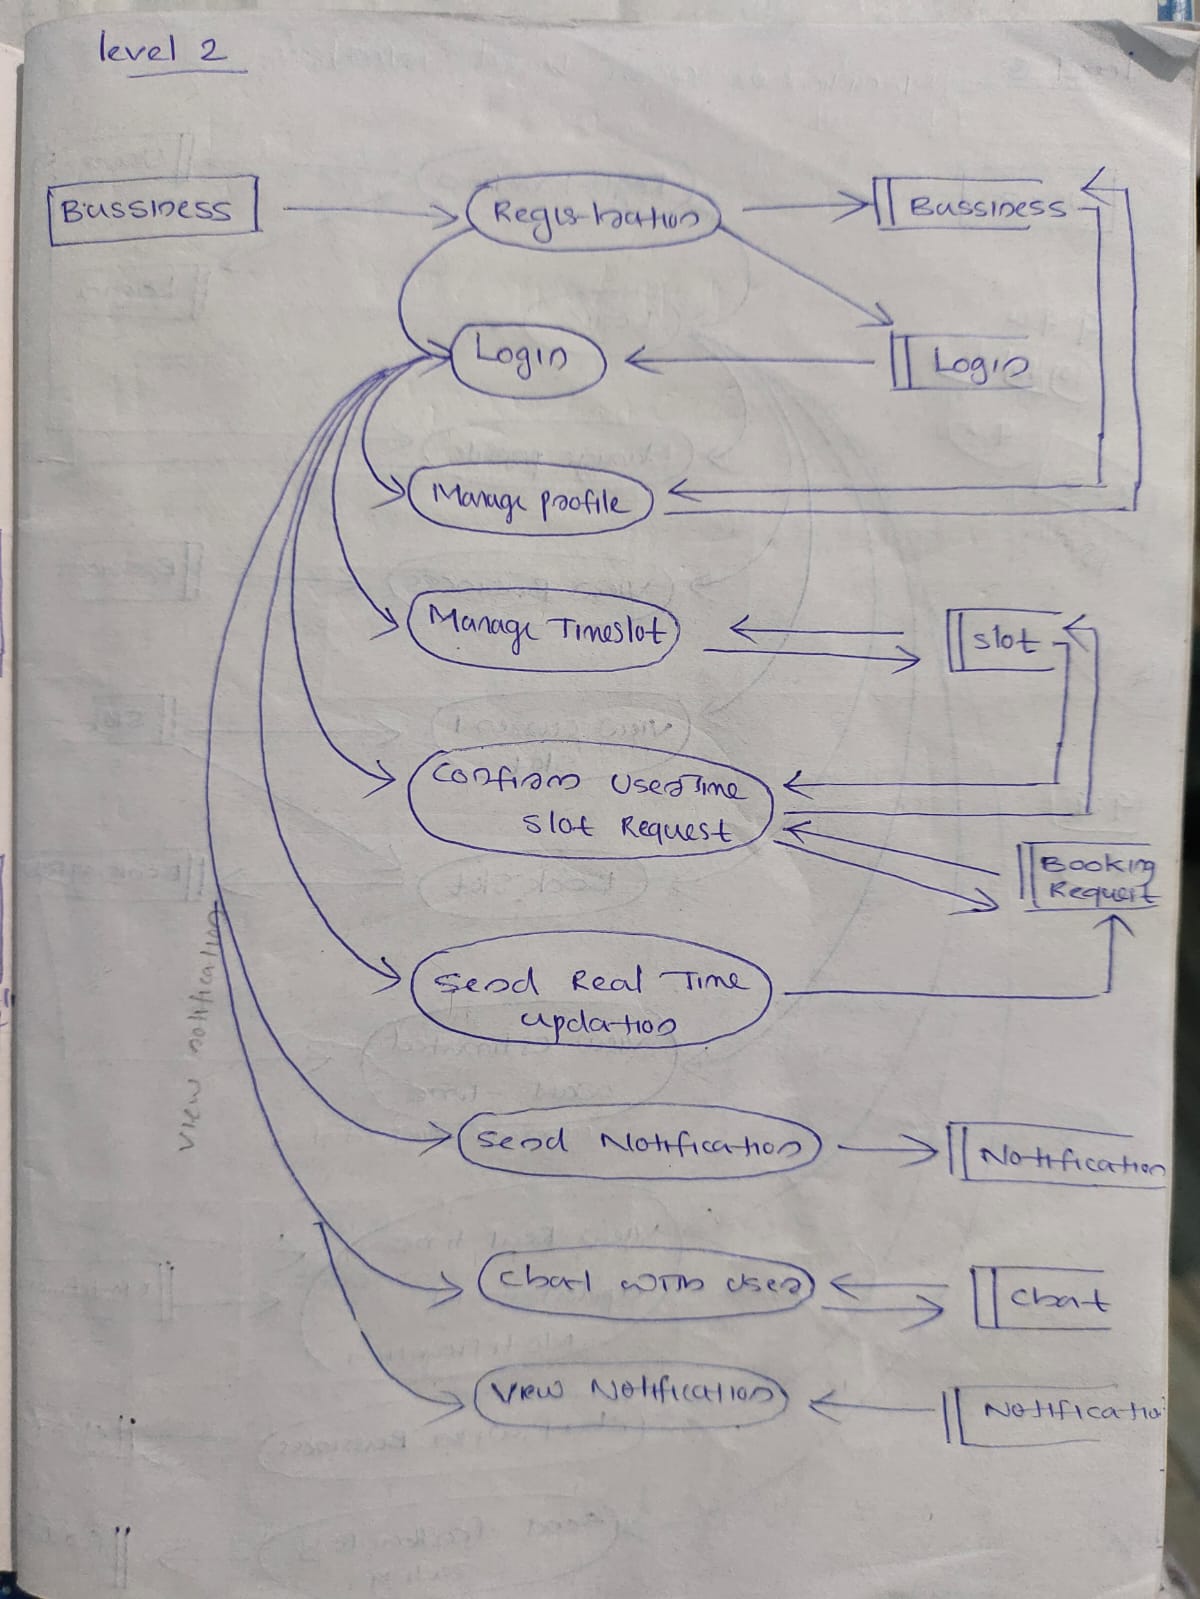 level 2
Bussiness
Registration
Bussiness
Login
Login
Manage profile
Manage Timeslot
slot
Confirm User Time
Slot Request
Booking
Request
Send Real Time
updation
view notification
Send Notification
Notification
Chat with user
Chat
View Notification
Notificatio